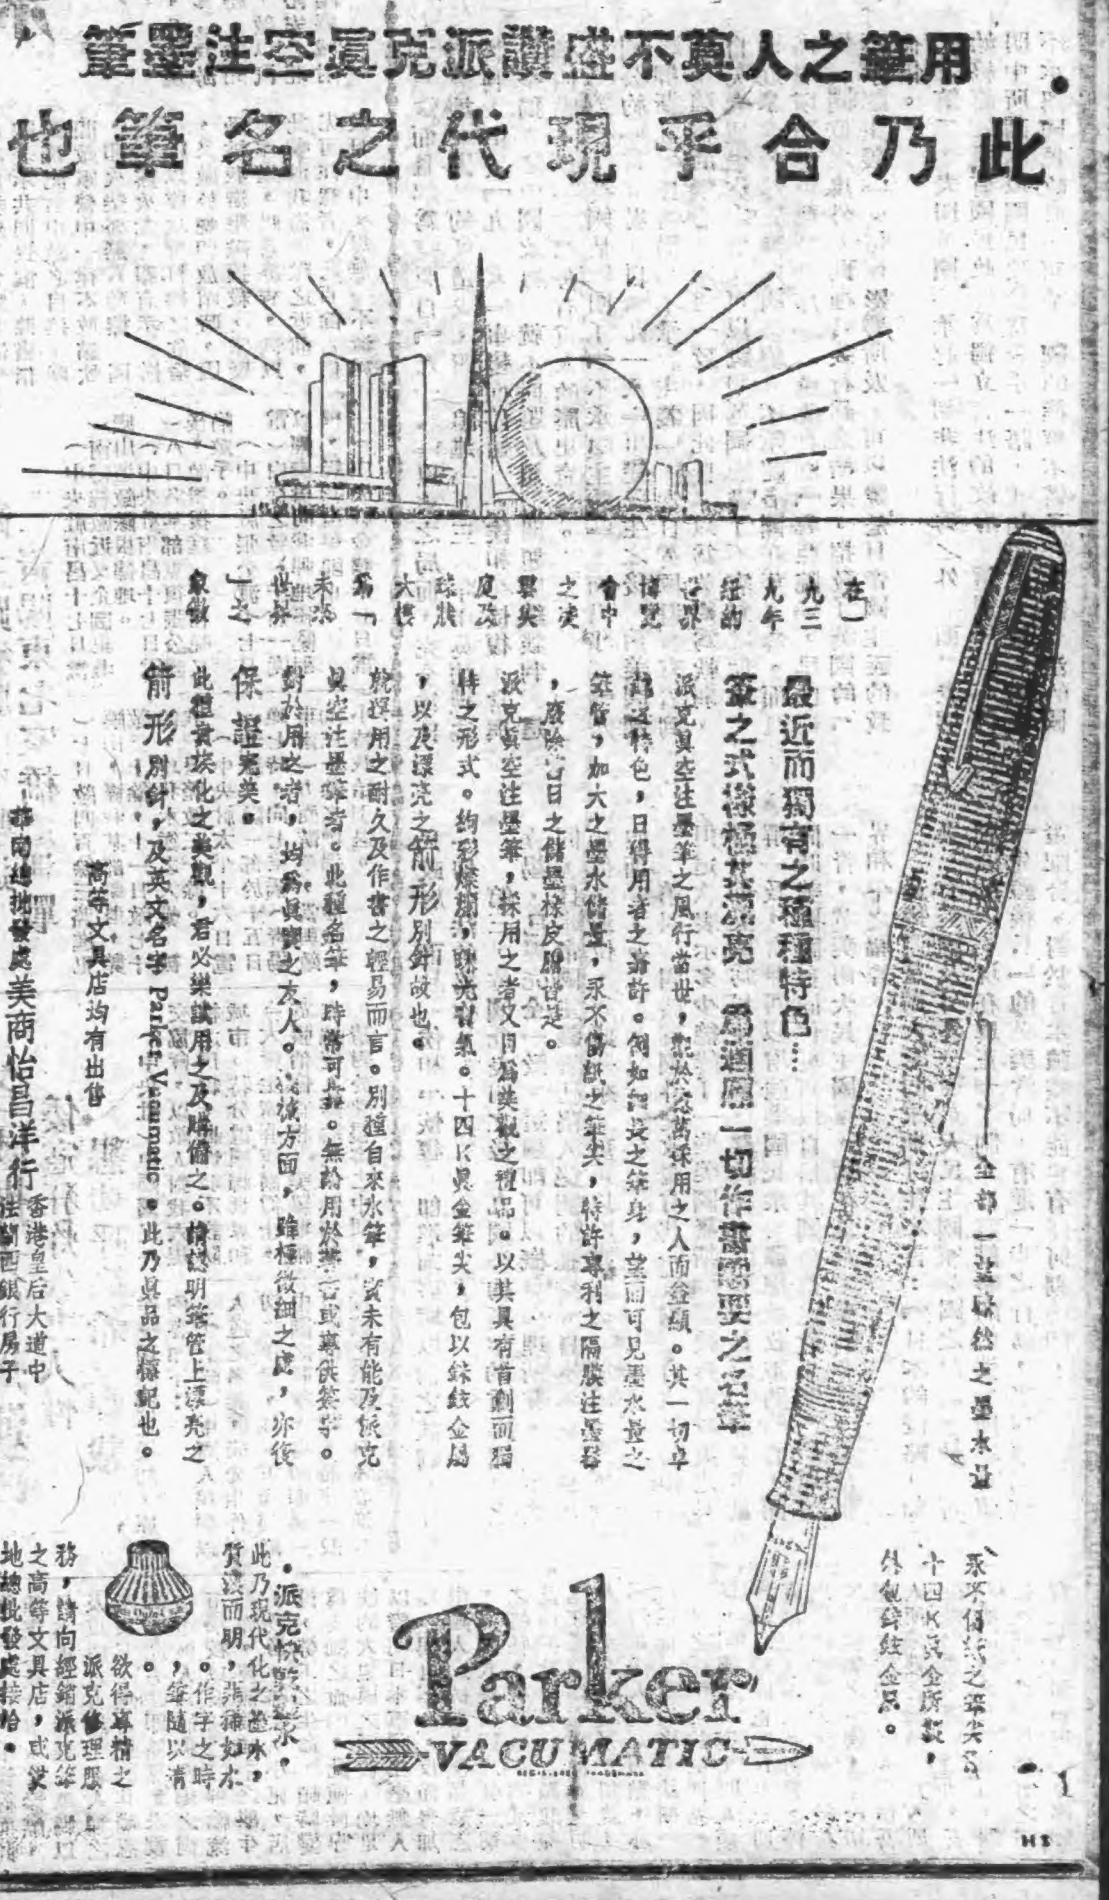 用筆之人莫不盛讚派克眞空注墨筆
此乃合乎現代之名筆也
在一
九三
九年
紐約
世界
博覽
會中
之尖
庭及
球狀
大樓
爲「
未來
世界
」之
象徵
最近而獨有之種種特色…
筆之式樣極其漂亮 爲適應一切作書需要之名筆
派克眞空注墨筆之風行當世,觀於念萬採用之人而益顯。其一切卓
越之特色,日得用者之嘉許。例如加長之筆身,望而可見墨水量之
筆管,加大之墨水儲量,永不傷紙之筆尖,特許專利之隔膜注墨器
,廢除舊日之儲墨橡皮膽皆是。
派克眞空注墨筆,採用之者又目爲美觀之禮品。以其具有首創而獨
特之形式。絢彩燦爛,珠光引氣。十四K眞金筆尖,包以銥鉉金屬
,以及漂亮之箭形別針故也。
於採用之耐久及作書之輕易而言。別種自來水筆,實未有能及派克
眞空注墨筆者。此種名筆,時常可靠。無論用於著書或專供簽字。
對於用之者,均爲眞實之友人。機械方面,雖極微細之處,亦復
保證完美。
此種貴族化之美觀,君必樂試用之及購備之。請認明筆管上漂亮之
箭形別針,及英文名字 Parker Vacumatic。此乃眞品之標記也。
高等文具店均有出售
華南總批發處美商怡昌洋行
香港皇后大道中
法蘭西銀行房子
全部一望瞭然之墨水量
永不傷紙之筆尖以
十四K眞金所製,
外包銥鉉金屬。
派克快乾墨水。
此乃現代化之墨水,
質淡而明,非稀如水
。作字之時
,筆隨以清
。
欲得專精之
派克修理服
務,請向經銷派克筆
之高等文具店,或
地總批發處接洽。
Parker
VACUMATIC
REGISTERED TRADEMARK
Quink
H 8